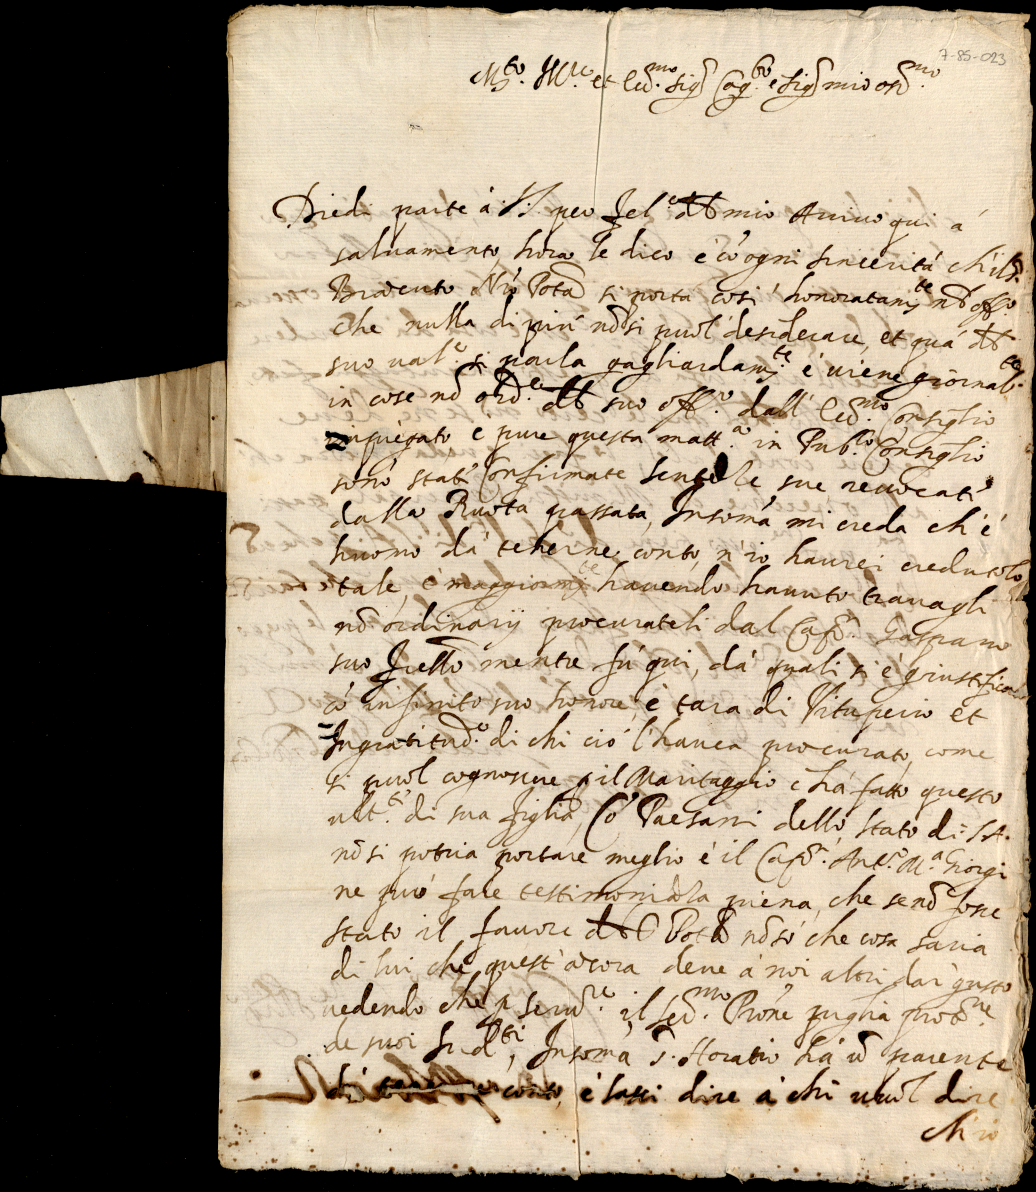 7-85-023
M.to Ill.re et Ecc.mo Sig.r Cog.to e Sig.r mio oss.mo
Diedi parte à V.S. per del mio Arriuo qui à
saluamento, hora le dico è cō ogni sincerità ch'il S.r
Nrō Potā si porta cosi honoratam.te nel off.o
che nulla di piu nō si puol desiderare, et quà del
suo ual.e si parla gagliardam.te è uiene giornal.te
in cose nō ord.e del suo off.o dall' Ecc.mo Consiglio
impiegato e pure questa matt.a in Pub.co Consiglio
sono state Confirmate sue reuocati
dalla Ruota passata, Insomā mi creda ch'è
huomo da tenerne conto, n'io haurei creduto lo
tale è maggiorm.te havendo hauuto trauagli
nō ordinarij procurateli dal Cap.o Gasparo
suo fratello mentre fù qui, dà quali si è giustificato
cō infinito suo honore, è tara di Vituperio et
Ingratitud.e di chi ciò l'hauea procurato, come
si puol cognoscere il Maritaggio c'hà fatto questo
ult.e di sua figlia, Cō Paesani dello stato di S.A.
nō si potria portare meglio è il Cap.o Ant.o M.a Giorgi
ne può fare testimonianza piena, che se nō fosse
stato il fauore del S. Potā nō sò che cosa saria
di lui che quest' ācora deue à noi altri dar gusto
uedendo che p seru.re il Ser.mo Prōne piglia prot.ne
de suoi sud.ti, Insomā S. Horatio hà ū parente
dà tenerne conto, è lassi dire à chi uuol dire
ch'io